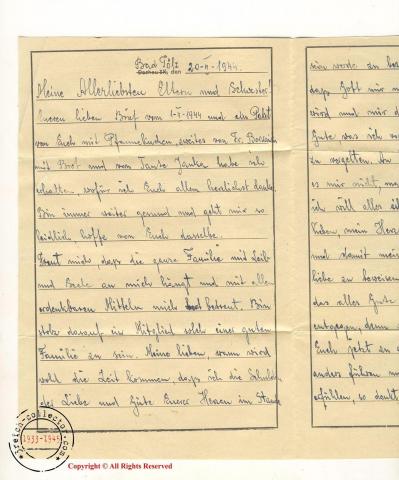 Bad Tölz
Dachau 3K, den 20-II-1944.
Meine Allerliebsten Eltern und Schwester!
Eueren lieben Brief vom 1-II-1944 und ein Paket
von Euch mit Pfannekuchen, zweites von Fr.
mit Brot und von Tante Janka habe ich
erhalten, wofür ich Euch allen herzlichst danke.
Bin immer weiter gesund und geht mir so
leidlich, hoffe von Euch dasselbe.
Freut mich, dass die ganze Familie mit Leib
und Seele an mich hängt und mit allen
erdenkbaren Mitteln mich betreut. Bin
stolz darauf ein Mitglied solch einer guten
Familie zu sein. Meine lieben, wann wird
wohl die Zeit kommen, dass ich die Schulden
der Liebe und Güte Euerer Herzen im Stande
dass Gott mir
wird und mir
Gute was ich
zu vergelten. In
es mir nicht,
ich will alles
haben mein Herz
und damit
liebe zu beweisen
das alles Gute
entgegen, denn
Euch jetzt zu
anders führen
erfüllen, so
3reich-collector.com
1933-1945
Copyright © All Rights Reserved